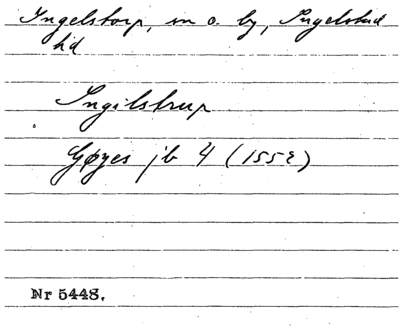 Ingelstorp, sn o. by, Ingelstad
hd
Ingilstrup
Gøyes jb 4 (1552)
Nr 5448.